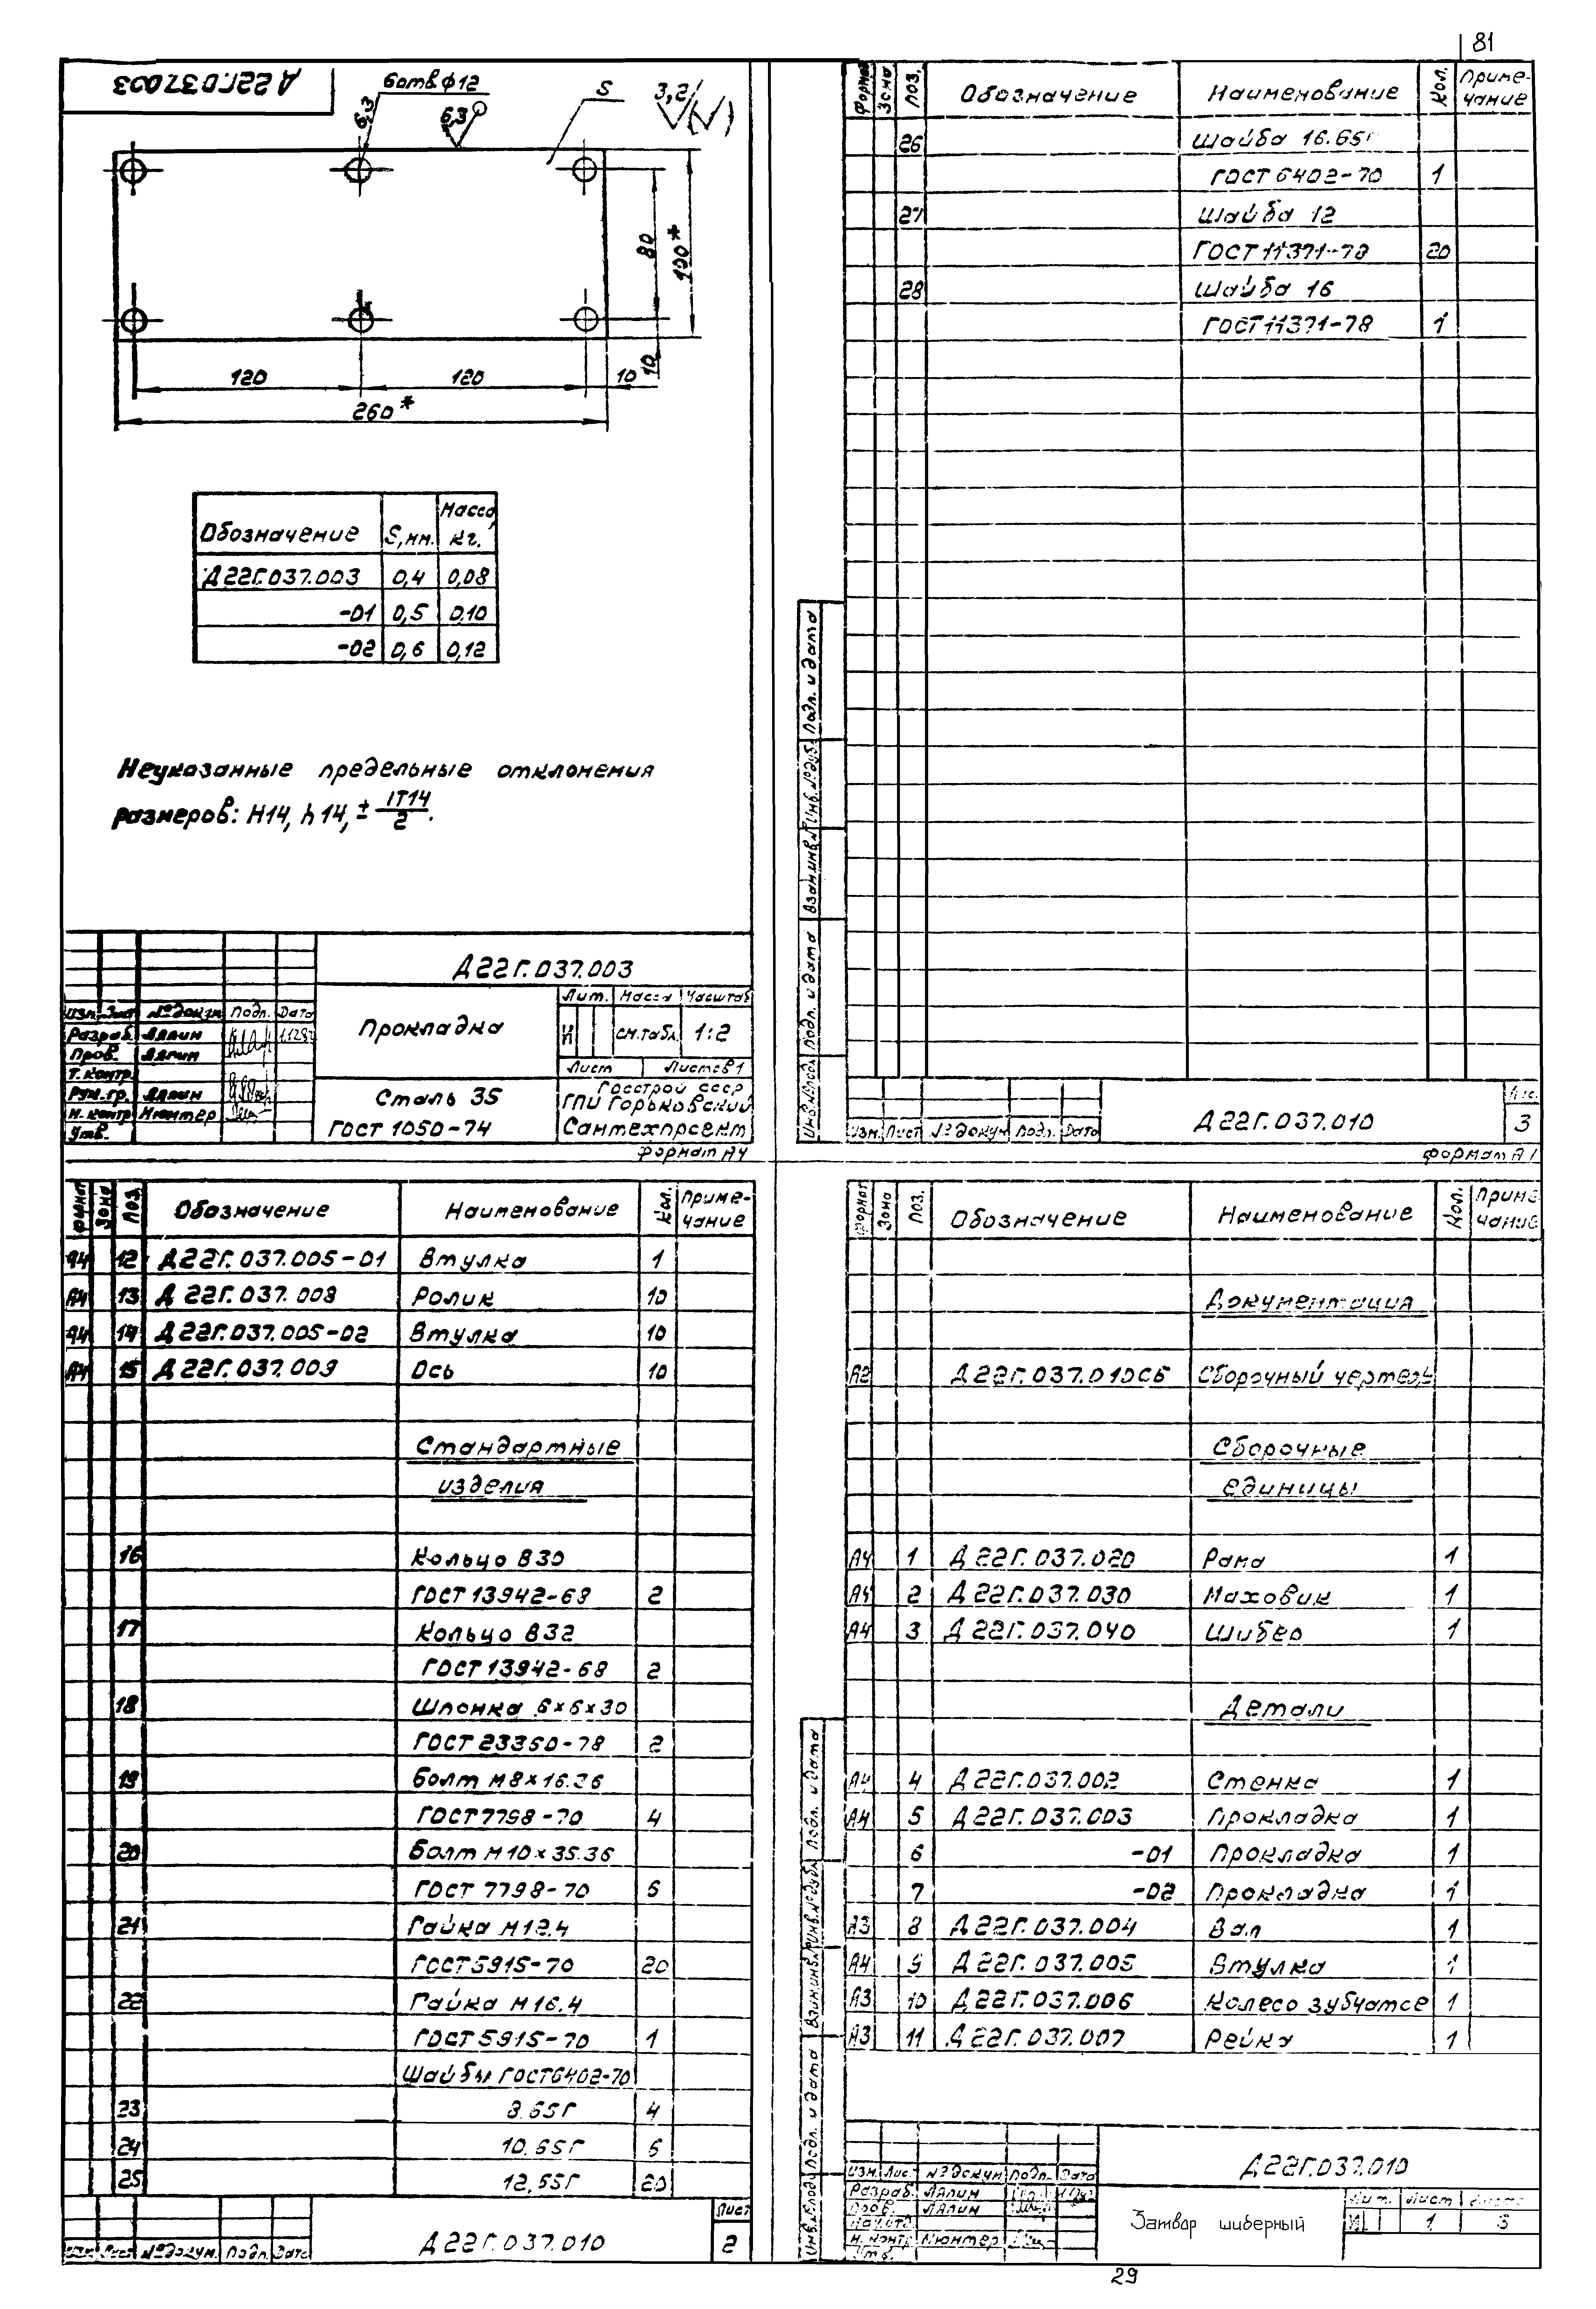 81
Д22Г.037.003
6 отв ф12
6,3
6,3
S
3,2
80
100*
10
120
120
10
260*
Обозначение S, мм. Масса, кг.
Д22Г.037.003 0,4 0,08
-01 0,5 0,10
-02 0,6 0,12
Неуказанные предельные отклонения
размеров: H14, h14, ± IT14/2.
Д22Г.037.003
Изм. Лист №докум Подп. Дата
Разраб. Лапин
Пров. Лапин
Т.контр.
Рук.гр. Лапин
Н.контр Нюнтер
Утв.
Прокладка
Лит. Масса Масштаб
И см.табл 1:2
Лист Листов 1
Сталь 35
ГОСТ 1050-74
Госстрой СССР
ГПИ Горьковский
Сантехпроект
Формат А4
Формат Зона Поз. Обозначение Наименование Кол. Приме-чание
26 Шайба 16.65Г
ГОСТ 6402-70 1
27 Шайба 12
ГОСТ 11371-78 20
28 Шайба 16
ГОСТ 11371-78 1
Подп. и дата
Инв.№дубл.
Взам.инв.№
Подп. и дата
Инв.№подл.
Изм. Лист №докум Подп. Дата
Д22Г.037.010
Лис.
3
Формат А
Формат Зона Поз. Обозначение Наименование Кол. Приме-чание
А4 12 Д22Г.037.005-01 Втулка 1
А4 13 Д22Г.037.008 Ролик 10
А4 14 Д22Г.037.005-02 Втулка 10
А4 15 Д22Г.037.009 Ось 10
Стандартные
изделия
16 Кольцо В30
ГОСТ 13942-68 2
17 Кольцо В32
ГОСТ 13942-68 2
18 Шпонка 6×6×30
ГОСТ 23350-78 2
19 Болт М8×16.36
ГОСТ 7798-70 4
20 Болт М10×35.36
ГОСТ 7798-70 6
21 Гайка М12.4
ГОСТ 5915-70 20
22 Гайка М16.4
ГОСТ 5915-70 1
Шайбы ГОСТ 6402-70
23 8.65Г 4
24 10.65Г 6
25 12.65Г 20
Изм Лист №докум. Подп. Дата
Д22Г.037.010
Лист
2
Формат Зона Поз. Обозначение Наименование Кол. Приме чание
Документация
А2 Д22Г.037.010СБ Сборочный чертеж
Сборочные
единицы
А4 1 Д22Г.037.020 Рама 1
А4 2 Д22Г.037.030 Маховик 1
А4 3 Д22Г.037.040 Шибер 1
Детали
А4 4 Д22Г.037.002 Стенка 1
А4 5 Д22Г.037.003 Прокладка 1
6 -01 Прокладка 1
7 -02 Прокладка 1
А3 8 Д22Г.037.004 Вал 1
А4 9 Д22Г.037.005 Втулка 1
А3 10 Д22Г.037.006 Колесо зубчатое 1
А3 11 Д22Г.037.007 Рейка 1
Подп. и дата
Инв.№дубл.
Взам.инв.№
Подп. и дата
Инв.№подл.
Изм. Лист №докум Подп. Дата
Разраб. Лапин
Пров. Лапин
Н.контр Нюнтер
Утв.
Д22Г.037.010
Затвор шиберный
Лит. Лист
И 1 3
29